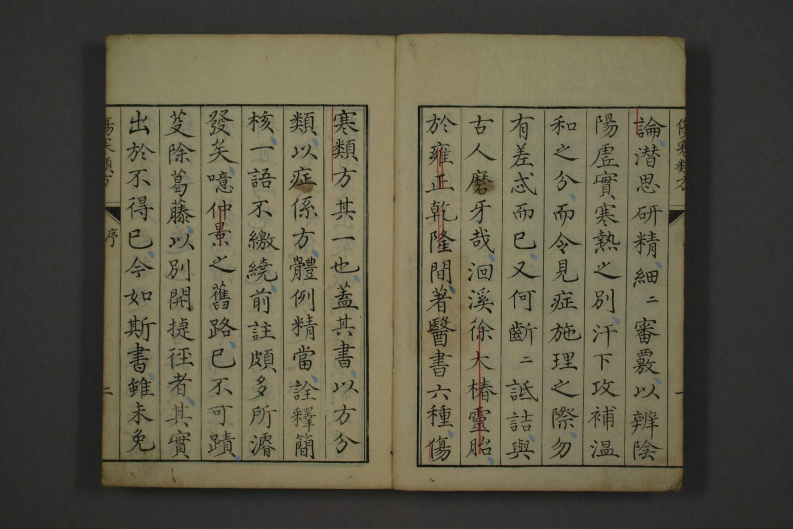 傷寒類方
論潜思研精細〻審覈以辨陰
陽虛實寒熱之別汗下攻補温
和之分而令見症施理之際勿
有差忒而已又何齗〻詆詰與
古人磨牙哉洄溪徐大椿靈胎
於雍正乾隆間著醫書六種傷
寒類方其一也蓋其書以方分
類以症係方體例精當詮釋簡
核一語不繳繞前註頗多所濬
發矣噫仲景之舊路已不可蹟
芟除葛藤以別開捷徑者其實
出於不得已今如斯書雖未免
傷寒類方
序
二